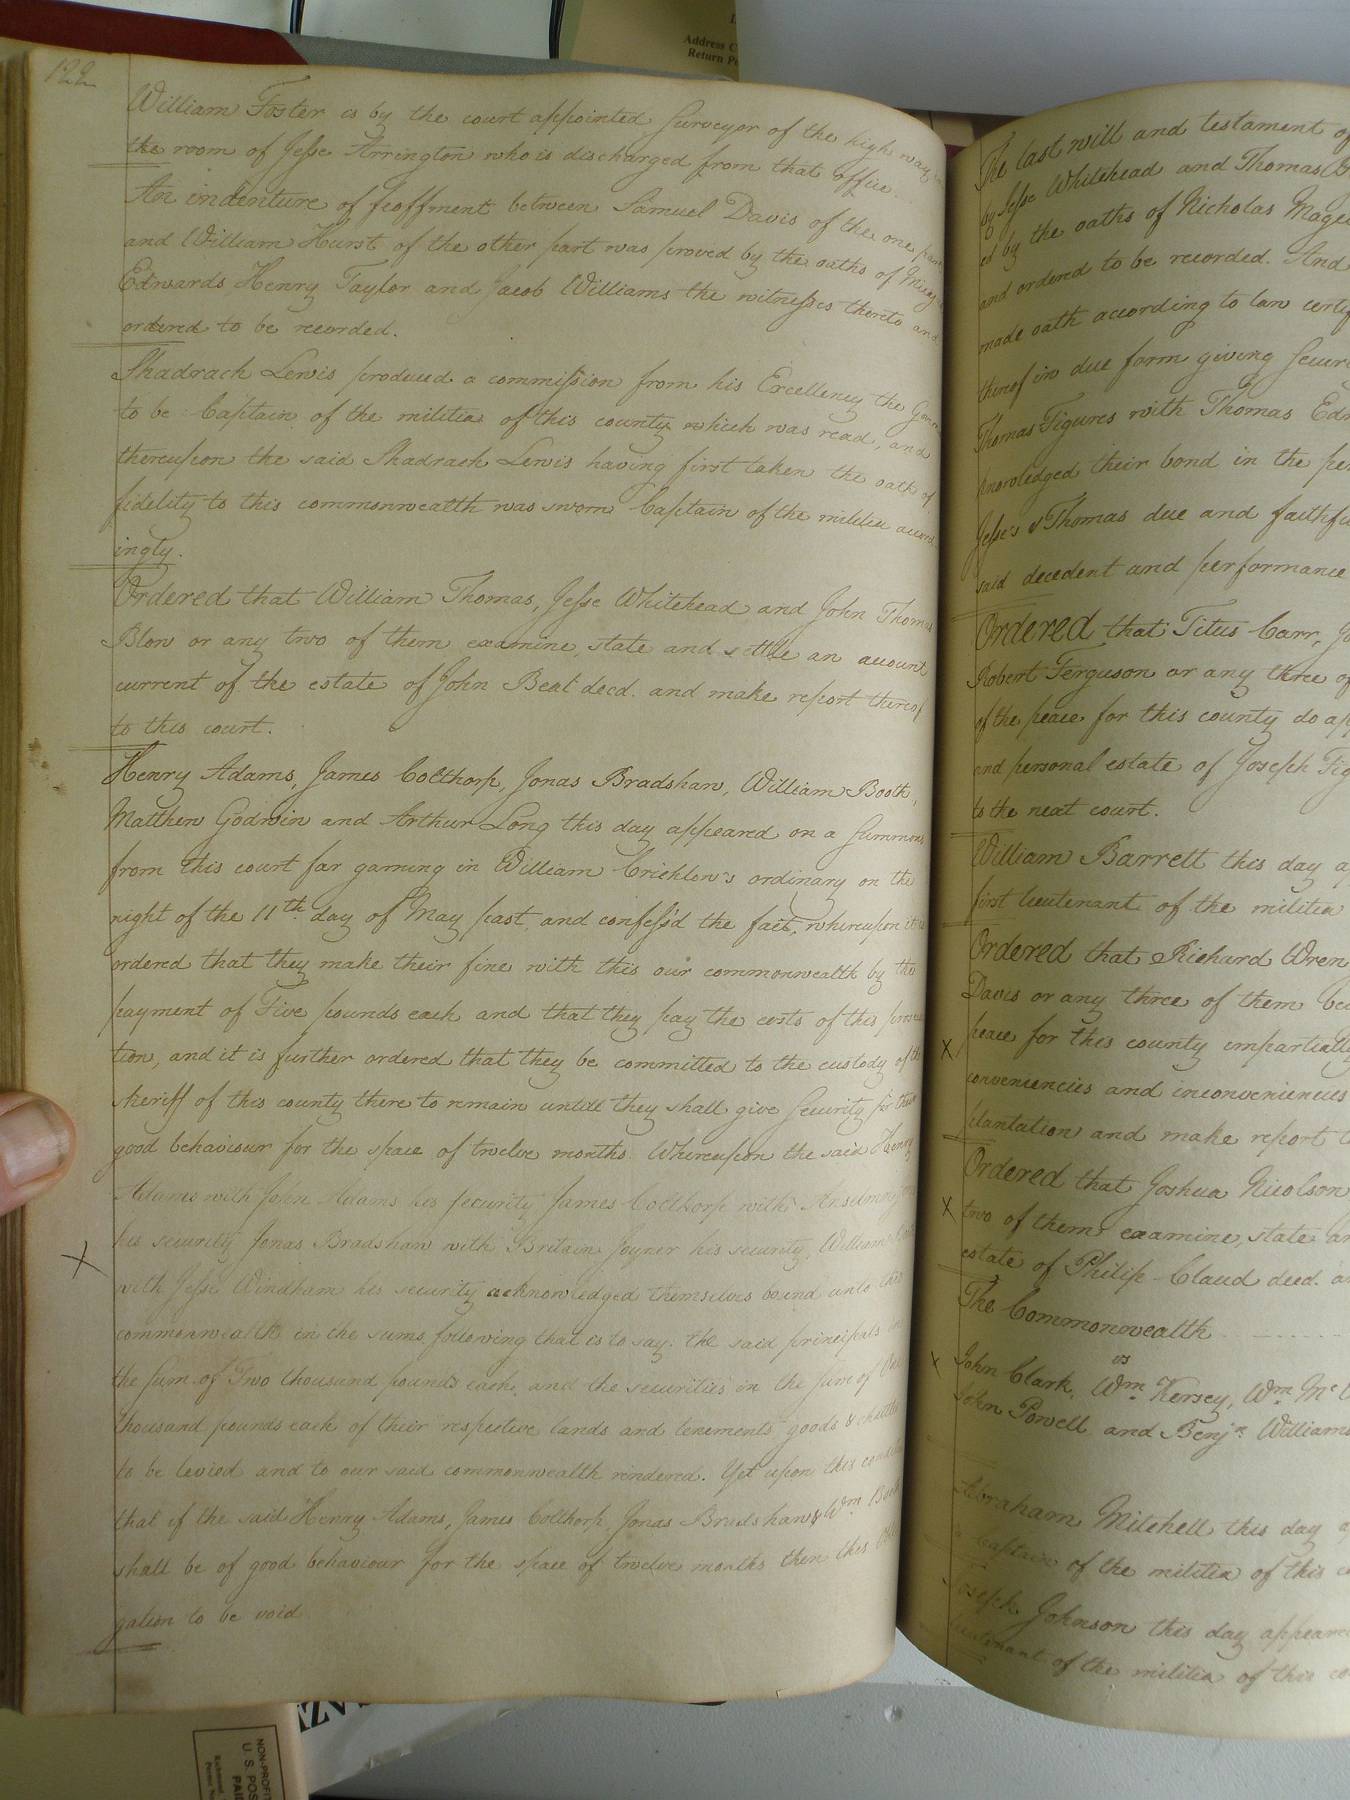 122
William Foster is by the court appointed Surveyor of the high way in
the room of Jesse Arrington who is discharged from that office
An indenture of feoffment between Samuel Davis of the one part
and William Hurst of the other part was proved by the oaths of
Edwards Henry Taylor and Jacob Williams the witnesses thereto and
ordered to be recorded.
Shadrach Lewis produced a commission from his Excellency the
to be Captain of the militia of this county which was read, and
thereupon the said Shadrach Lewis having first taken the oath of
fidelity to this commonwealth was sworn Captain of the militia accord
ingly.
Ordered that William Thomas, Jesse Whitehead and John Thomas
Blow or any two of them examine, state and settle an account
current of the estate of John Beal decd. and make report thereof
to this court.
Henry Adams, James Colthorp, Jonas Bradshaw, William Booth,
Matthew Godwin and Arthur Long this day appeared on a Summons
from this court for gaming in William Crichlow's ordinary on the
night of the 11th day of May past, and confess'd the fact, whereupon it is
ordered that they make their fine with this our commonwealth by the
payment of Five pounds each and that they pay the costs of this prosecu
tion, and it is further ordered that they be committed to the custody of the
sheriff of this county there to remain untill they shall give Security for their
good behaviour for the space of twelve months. Whereupon the said Henry
Adams with John Adams his security James Colthorp with
his security Jonas Bradshaw with Britain Joyner his security, William Booth
with Jesse Windham his security acknowledged themselves bound unto this
commonwealth in the sums following that is to say. the said principals in
the Sum of Two thousand pounds each, and the securities in the Sum of One
thousand pounds each of their respective lands and tenements goods & chattles
to be levied and to our said commonwealth rendered. Yet upon this condition
that if the said Henry Adams, James Colthorp, Jonas Bradshaw & Wm. Booth
shall be of good behaviour for the space of twelve months then this Obli
gation to be void
The last will and testament of
by Jesse Whitehead and Thomas
ed by the oaths of Nicholas
and ordered to be recorded. And
made oath according to law
thereof in due form giving
Thomas Figures with Thomas
knowledged their bond in the
Jesse's & Thomas due and
said decedent and performance
Ordered that Titus Carr,
Robert Ferguson or any three of
of the peace for this county do
and personal estate of Joseph
to the next court.
William Barrett this day
first lieutenant of the militia
Ordered that Richard Wren
Davis or any three of them
peace for this county impartially
conveniencies and inconveniencies
plantation and make report
Ordered that Joshua Nicolson
two of them examine, state
estate of Philip Claud decd.
The Commonwealth
vs
John Clark, Wm. Kersey, Wm.
John Powell and Benjn. Williams
Abraham Mitchell this day
Captain of the militia of this
Joseph Johnson this day
lieutenant of the militia of this
Address
Return
NON-PROFIT
U. S. POS
PAI